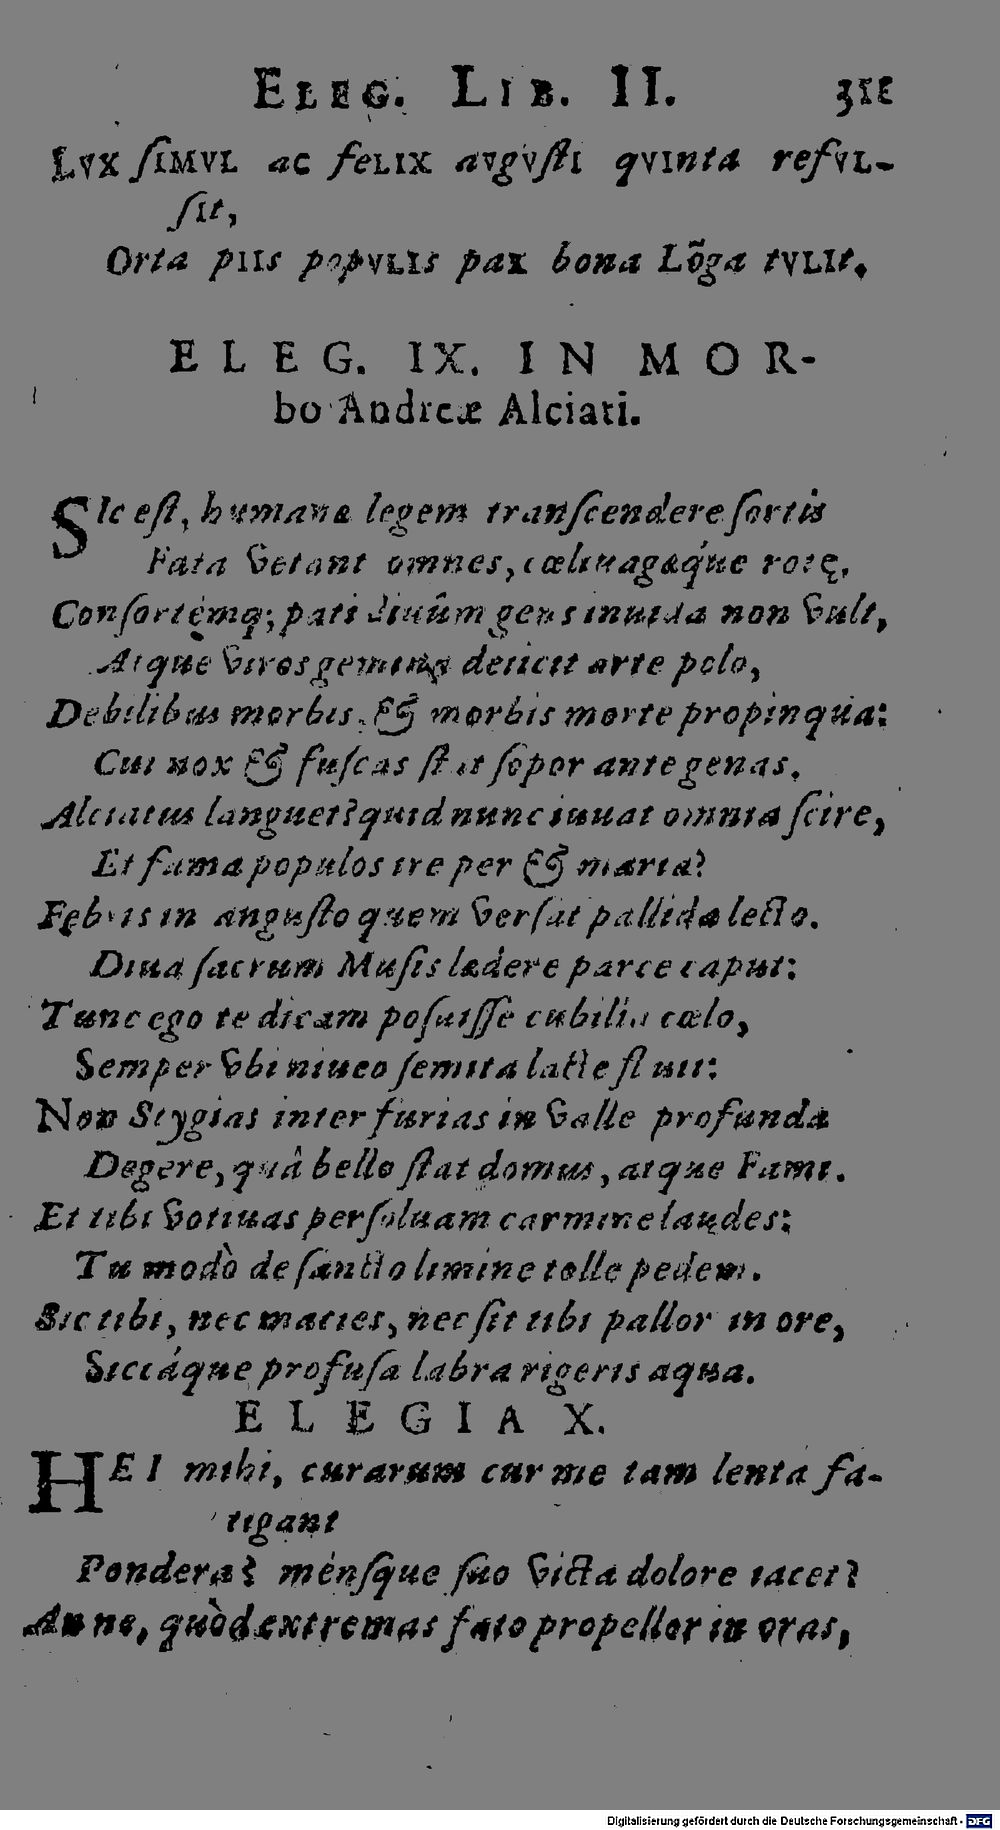 ELEG. LIB. II. 311
LVX ſIMVL ac feLIX avgvſtI qvInta refvL-
ſIt,
Orta pIIs popvLIs pax bona Lõga tvLIt.
ELEG. IX. IN MOR-
bo Andreæ Alciati.
SIc eſt, humanæ legem tranſcendere ſortis
Fata vetant omnes, cœliuagæq́ue rotę,
Conſortémq; pati diuûm gens inuida non vult,
Atque viros gemina deiicit arte polo,
Debilibus morbis, & morbis morte propinqua:
Cui nox & fuſcas ſtat ſopor ante genas.
Alciatus languet? quid nunc iuuat omnia ſcire,
Et fama populos ire per & maria?
Febris in anguſto quem verſat pallida lecto.
Diua ſacrum Muſis lædere parce caput:
Tunc ego te dicam poſuiſſe cubilia cœlo,
Semper vbi niueo ſemita lacte fluit:
Non Stygias inter furias in valle profunda
Degere, quà bello ſtat domus, atque Fami.
Et tibi votiuas perſoluam carmine laudes:
Tu modò de ſancto limine tolle pedem.
Sic tibi, nec macies, nec ſit tibi pallor in ore,
Siccáque profuſa labra rigeris aqua.
ELEGIA X.
HEI mihi, curarum cur me tam lenta fa-
tigant
Pondera? ménſque ſuo victa dolore iacet?
An ne, quòd extremas fato propellor in oras,
Digitalisierung gefördert durch die Deutsche Forschungsgemeinschaft - DFG